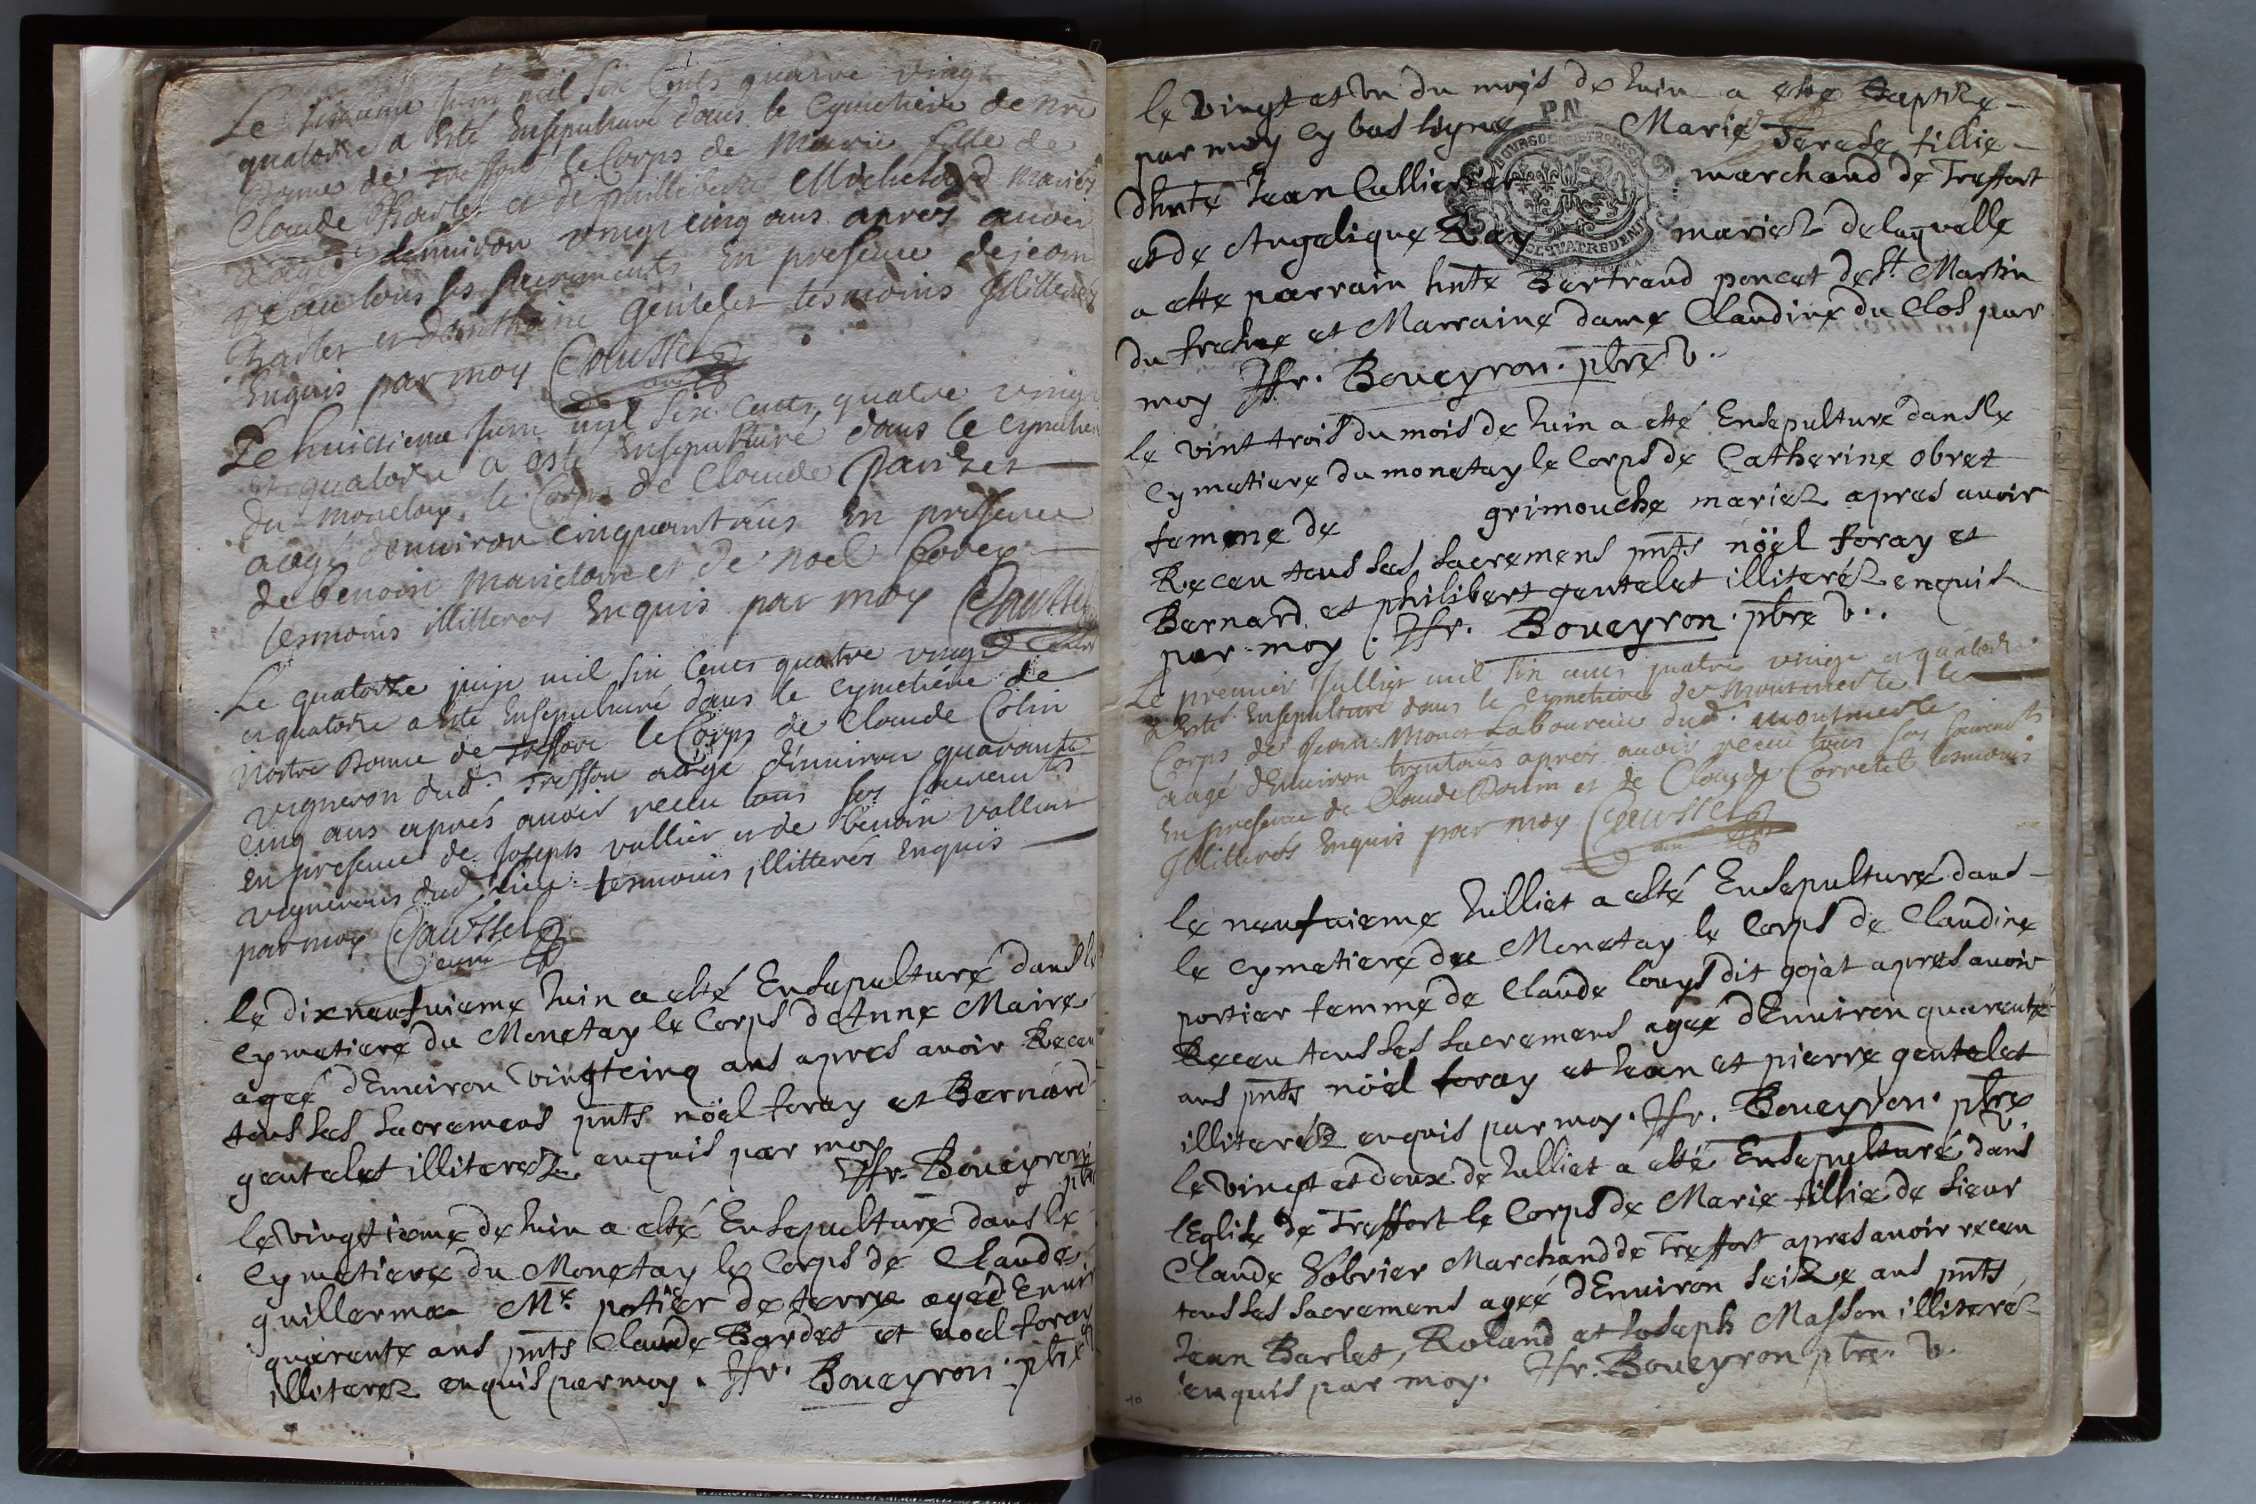 Le sixieme juin mil six cents quatre vingt
quatorze a esté Ensepulturé dans le cymetiere de nre
Dame de Treffort le Corps de Marie fille de
Claude Charlet et de phillberte Michelard mariés
aagée denuiron vingt cinq ans apres auoir
receu tous ses sacrements En presence de jean
Charlet et d'anthoine genteles tesmoins Jllitterés
Enquis par moy Coussel
Le huictieme juin mil six cents quatre vingt
et quatorze a esté Ensepulturé dans le cymetiere
du monetay le Corps de Claude
aagé denuiron cinquant'ans En presence
de benoin et de noel forey
tesmoins illitteres Enquis par moy Coussel
Le quatorze juin mil six cents quatre vingt
et quatorze a esté Ensepulturé dans le cymetiere de
Nostre Dame de Treffort le Corps de Claude Colin
vigneron dud. Treffort aagé d'enuiron quarante
cinq ans aprés auoir receu tous ses sacrents
en presence de Joseph vullier et de benoin vullier
vignerons dud. lieu tesmoins illitterés Enquis
par moy Coussel
curé
le dixneufuieme Juin a esté Ensepulturé dans le
Cymetiere du Monetay le Corps d'Anne Maire
ageé d'Enuiron vingtcinq ans apres auoir Receu
tous ses sacremens pnts nöel foray et Bernard
gentelet illiterez enquis par moy
Jfr. Boueyron
ptre
le vingtieme de Juin a esté Ensepulturé dans le
Cymetiere du Monetay le Corps de Claude
guillermo Mr potier de terre agéé d'Enuir
quarente ans pnts Claude Bordet et noel foray
illiterez enquis par moy. Jfr. Boueyron. ptre
le vingt et vn du mois de Juin a esté Baptize
par moy cy bas signe Marie Terese fillie
dhnte Jean Cullier marchand de Treffort
et de Angelique Ray mariez de laquelle
a esté parrain hnte Bertrand poncet de St. Martin
du fresne et Marraine dame Claudine du Clos par
moy Jfr. Boueyron. ptre v.
le vint trois du mois de Juin a esté Ensepulturé dans le
Cymetiere du monetay le Corps de Catherine obret
femme de grimouche mariez apres auoir
Receu tous ses sacremens pnts nöel foray et
Bernard et philibert gentelet illiteréz enquis
par moy. Jfr. Boueyron. ptre v.
Le premier Jullier mil six cents quatre vingt et quatorze
a esté Ensepulturé dans le cymetiere de Montmerle le
Corps de Jean Monet Laboureur dud. Montmerle
aagé d'Enuiron trent'ans aprés auoir receu tous ses sacrents
En presence de Claude et de Claude Corretel tesmoins
Jllitterés Enquis par moy Coussel
curé
le neufuieme Julliet a esté Ensepulturé dans
le cymetiere du Monetay le Corps de Claudine
portier femme de Claude Louys dit gojat apres auoir
Receu tous ses sacremens ageé d'Enuiron quarente
ans pnts nöel foray et Jean et pierre gentelet
illiteréz enquis par moy. Jfr. Boueyron. ptre
v.
le vingt et deux de Julliet a esté Ensepulturé dans
l'Eglise de Treffort le Corps de Marie fillie de sieur
Claude Vobrier Marchand de Treffort apres auoir receu
tous ses sacremens ageé d'Enuiron seize ans pnts
Jean Barlet, Roland et Joseph Masson illiteréz
enquis par moy. Jfr. Boueyron ptre. v.